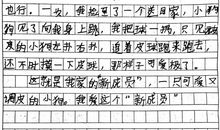 也行。一次，我抱直了一个送回家，小狗
狗见了向我身上跳，我把球一扔，只见
皮的小狗扑右扑，追着皮球跑来跑去，
还不时摸一下皮球，那样子可爱极了。
这就是我家的"新成员"，一只可爱又
调皮的小狗。我爱这个"新成员"